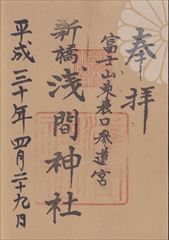 奉拝
富士山東表口参道宮
新橋浅間神社
平成三十年四月二十九日